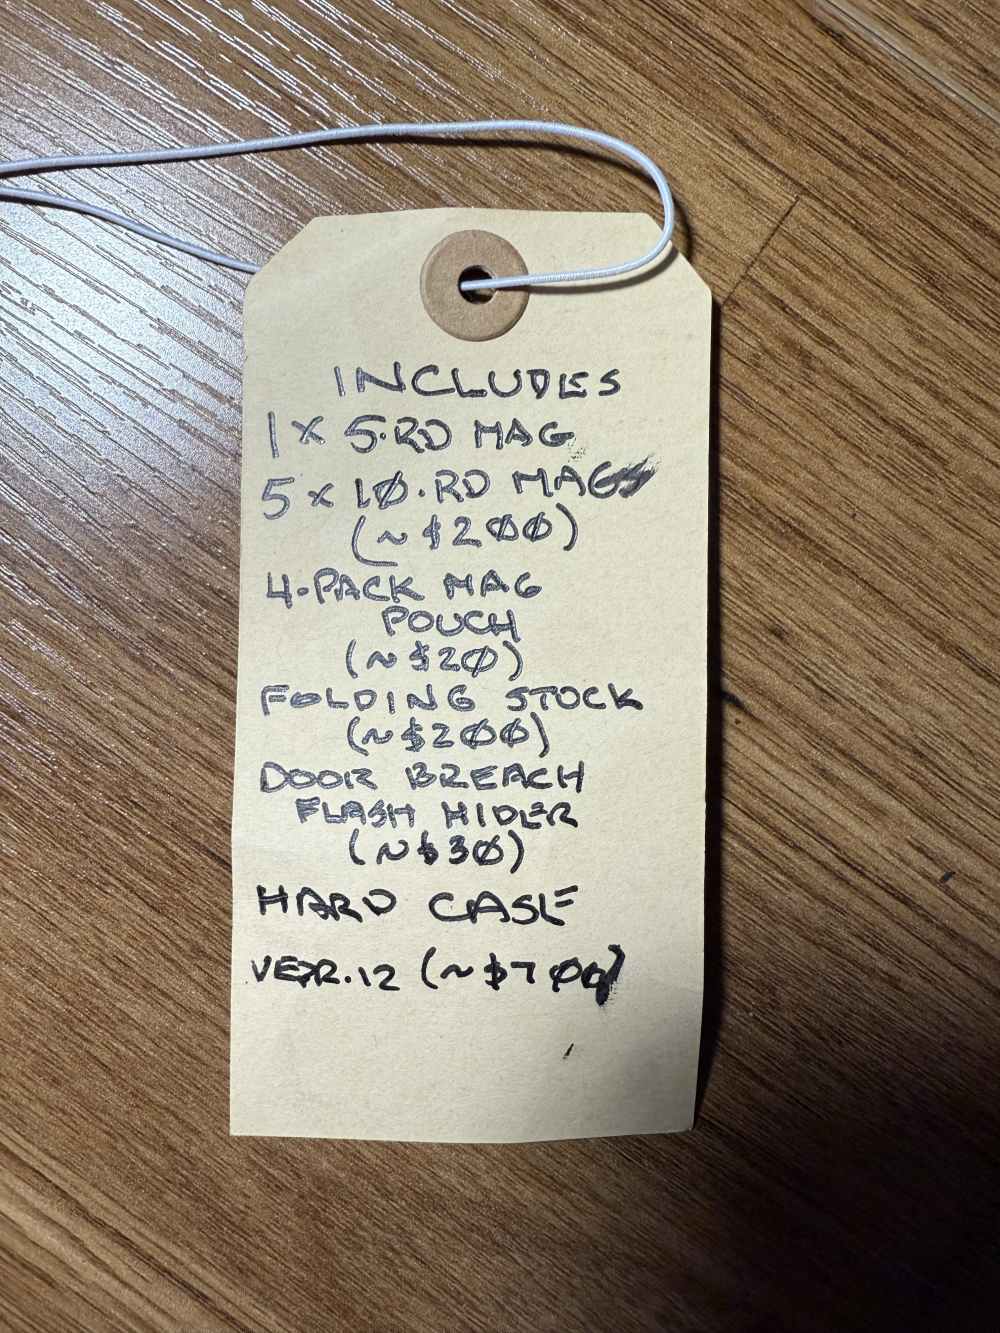 INCLUDES
1 x 5.RD MAG
5 x 10.RD MAGS
(~$200)
4.PACK MAG
POUCH
(~$20)
FOLDING STOCK
(~$200)
DOOR BREACH
FLASH HIDER
(~$30)
HARD CASE
VEPR.12 (~$700)